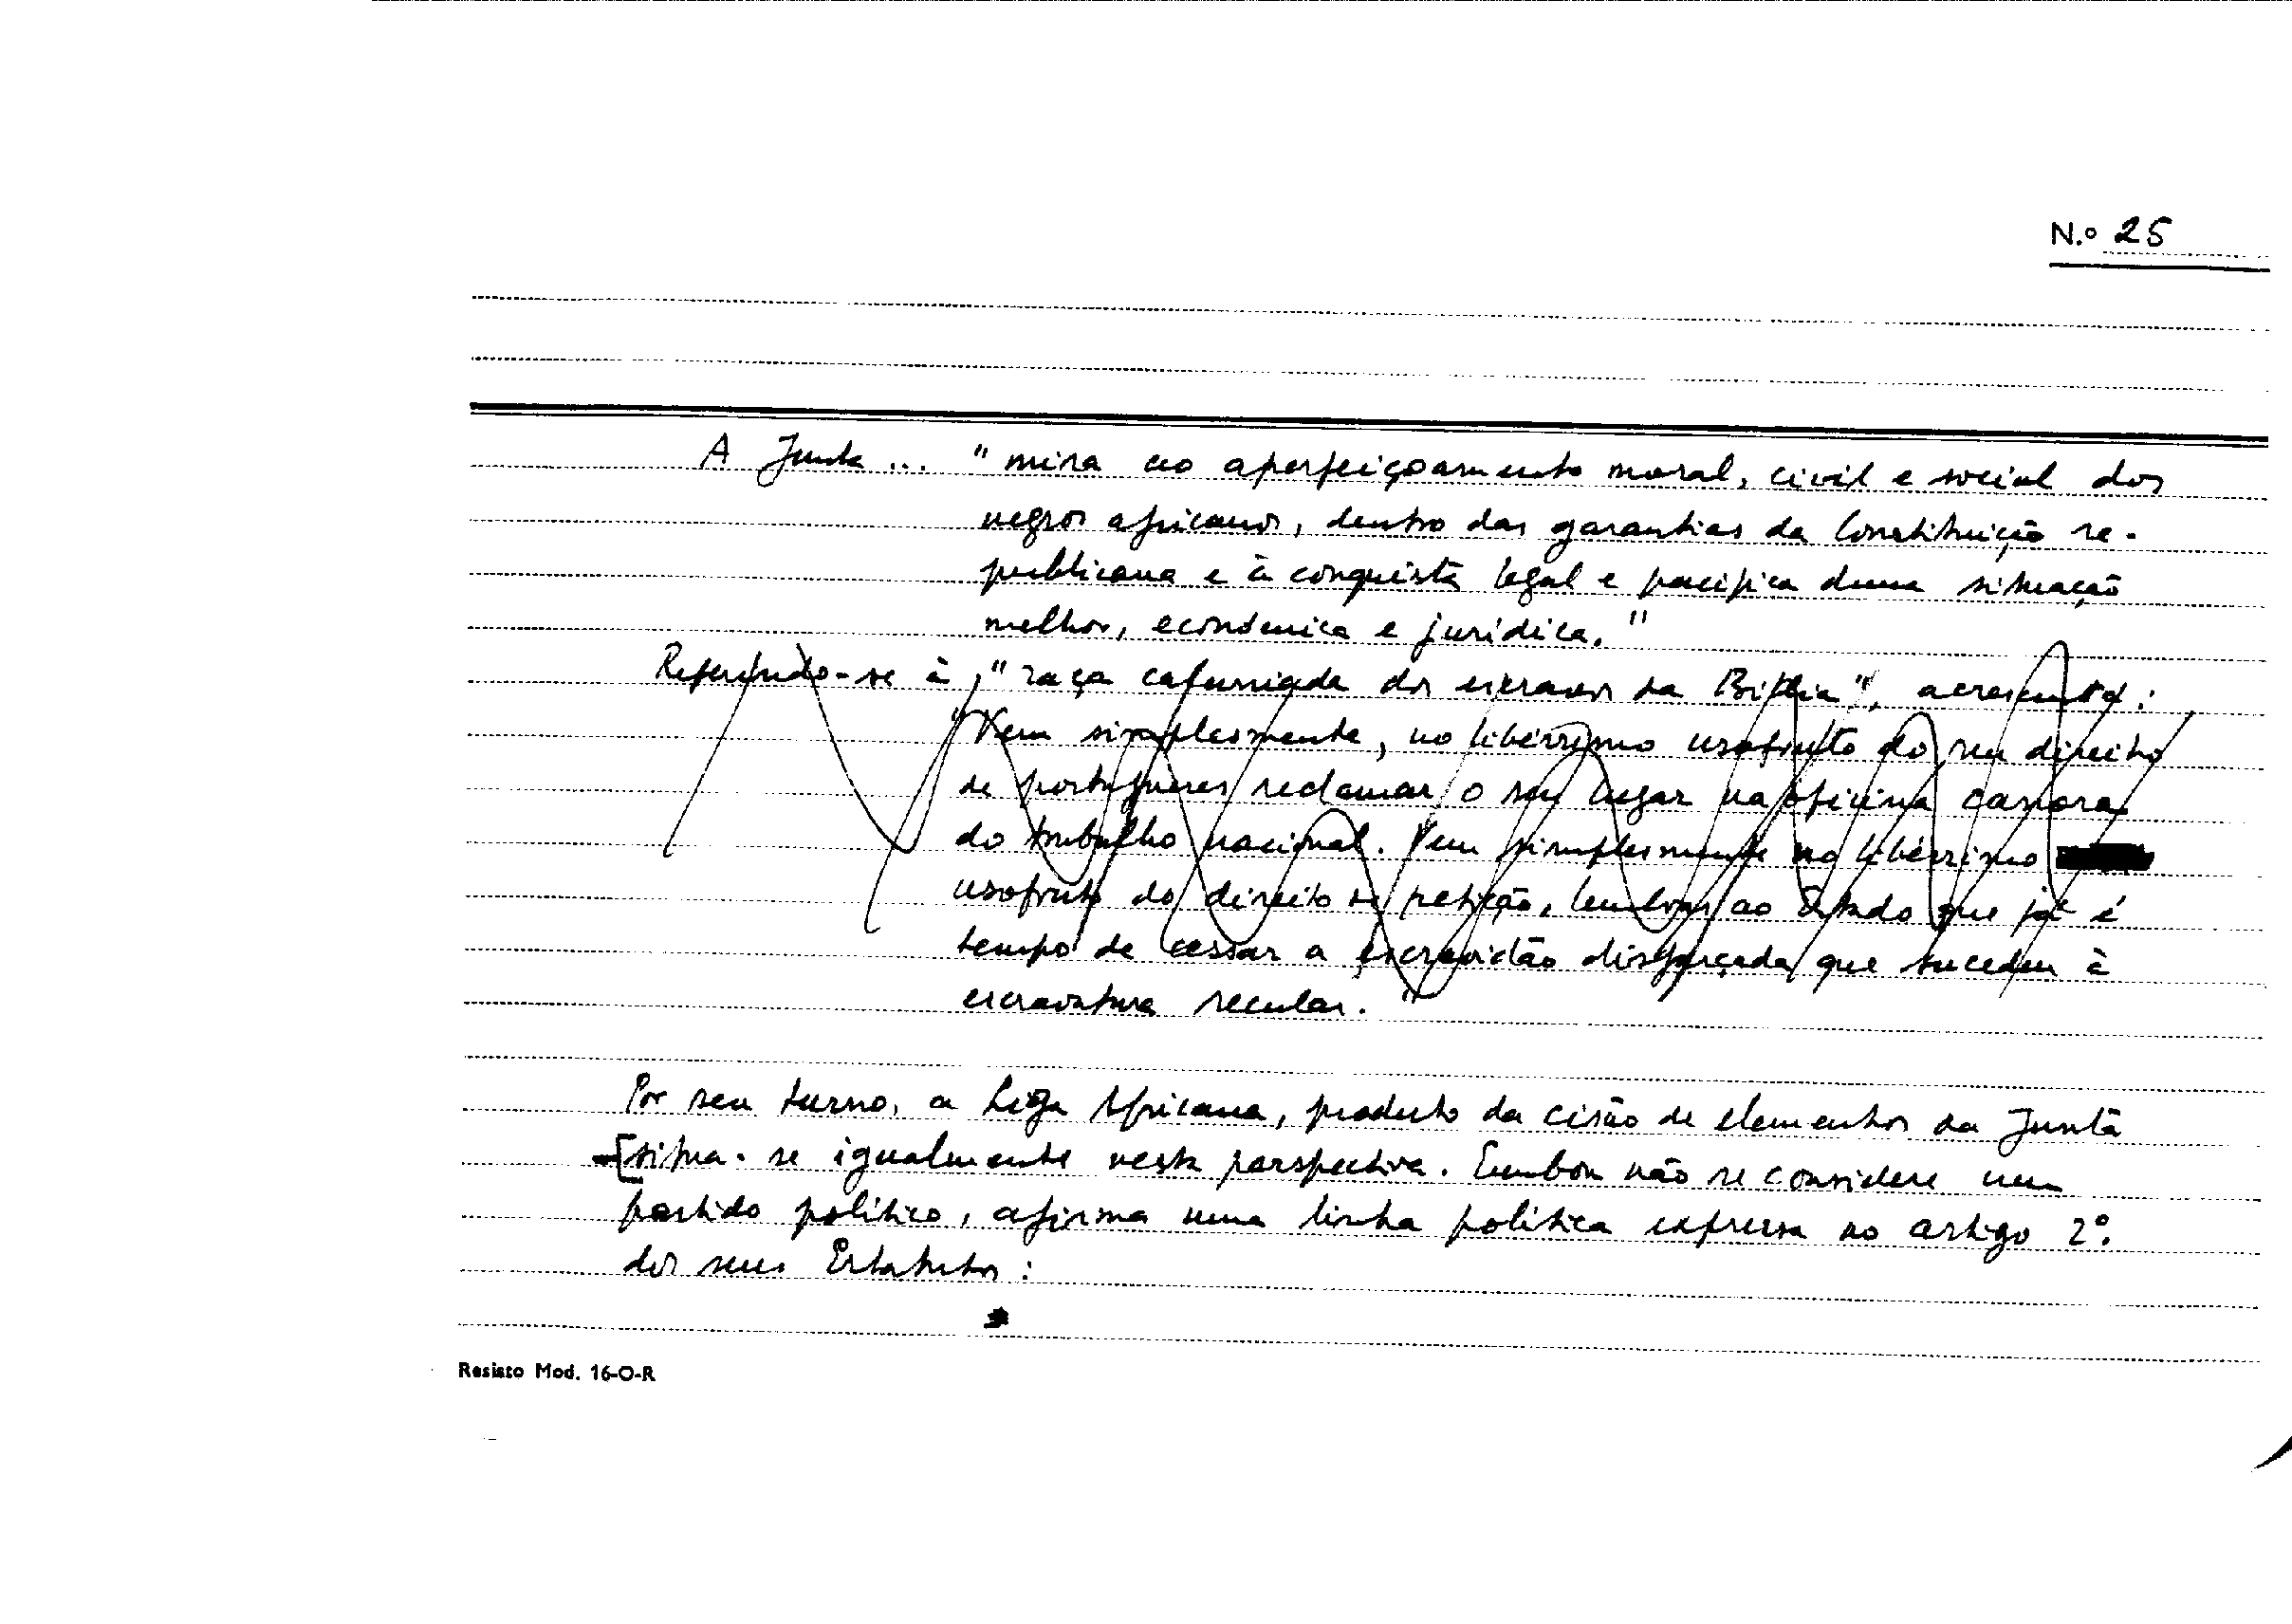 N.º 25
A Junta ... "mira ao aperfeiçoamento moral, civil e social dos
negros africanos, dentro das garantias da Constituição re-
publicana e à conquista legal e pacífica duma situação
melhor, económica e jurídica."
Referindo-se à "raça dos escravos da Bíblia", acrescenta:
"Vem simplesmente, no libérrimo usofruto do seu direito
de portugueses reclamar o seu lugar na oficina
do trabalho nacional. Vem simplesmente no libérrimo
usofruto do direito de petição, lembrar ao Estado que já é
tempo de cessar a escravidão disfarçada que sucedeu à
escravatura secular."
Por seu turno, a Liga Africana, producto da cisão de elementos da Junta
[situa-se igualmente nesta perspectiva. Embora não se considere um
partido político, afirma uma linha política expressa no artigo 2º.
dos seus Estatutos:
Resisto Mod. 16-O-R